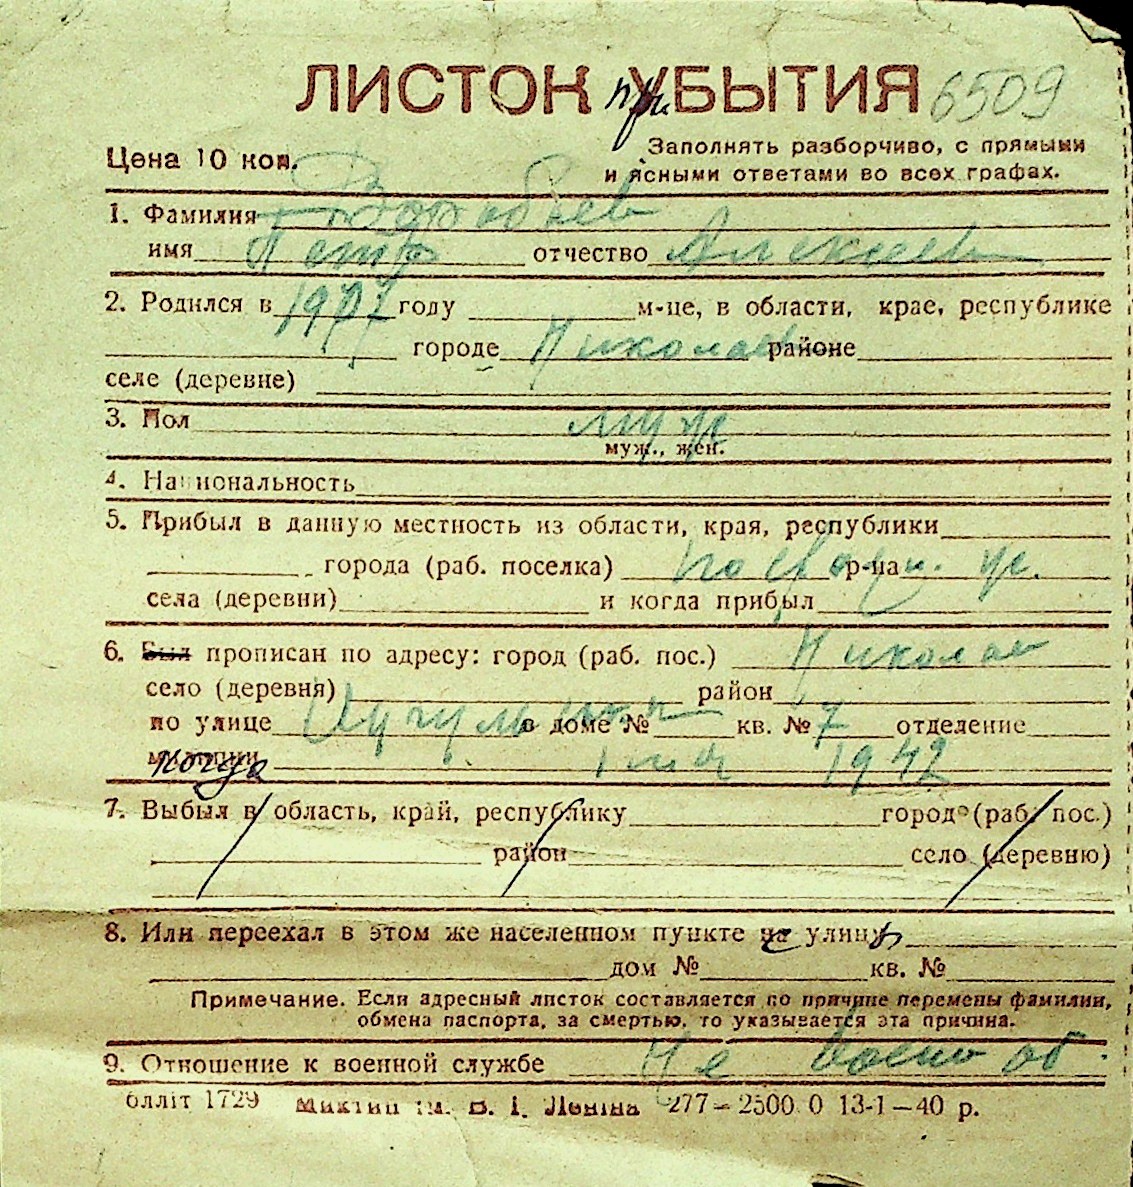 ЛИСТОК при УБЫТИЯ 6509
Цена 10 коп. Заполнять разборчиво, с прямыми
и ясными ответами во всех графах.
1. Фамилия Воробьев
имя Петр отчество Алексеев
2. Родился в году м-це, в области, крае, республике
городе Николаев районе
селе (деревне)
3. Пол муж
муж., жен.
4. Национальность
5. Прибыл в данную местность из области, края, республики
города (раб. поселка) р-на
села (деревни) и когда прибыл
6. Был прописан по адресу: город (раб. пос.) Николаев
село (деревня) район
по улице в доме № кв. № 7 отделение
милиции когда 1942
7. Выбыл в область, край, республику город (раб. пос.)
район село (деревню)
8. Или переехал в этом же населенном пункте улицы
дом № кв. №
Примечание. Если адресный листок составляется по причине перемены фамилии,
обмена паспорта, за смертью, то указывается эта причина.
9. Отношение к военной службе Не военнооб.
олліт 1729 ім. В. І. Леніна 277–2500 0 13-1–40 р.